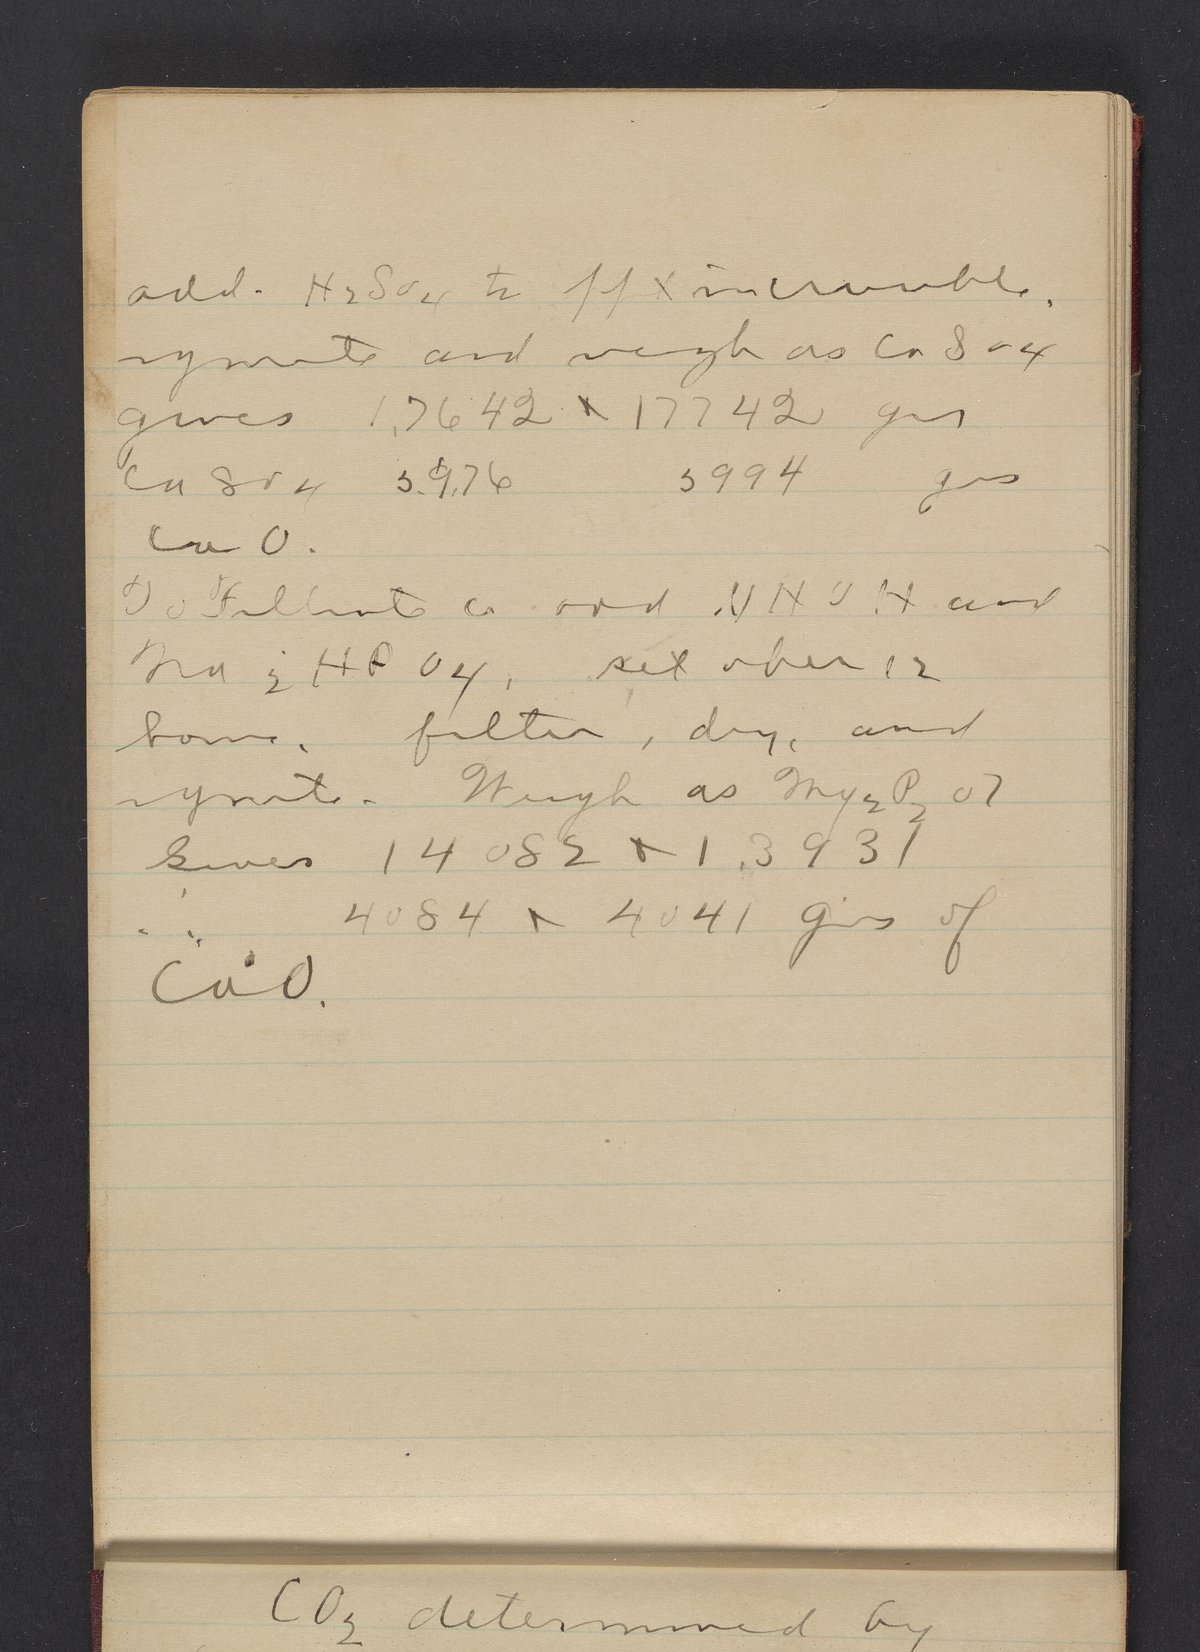 add. H2SO4 to ppt in crucible.
ignite and weigh as CaSO4
gives 1.7642 + 17742 gms
CaSO4 5.9.76 5994 gms
CaO.
To Filtrate add NHOH and
Na2HPO4, set over 12
hours. filter, dry, and
ignite. Weigh as Mg2P2O7
Gives 14082 + 1.3931
" " 4084 + 4041 gms of
CaO.
CO2 determined by